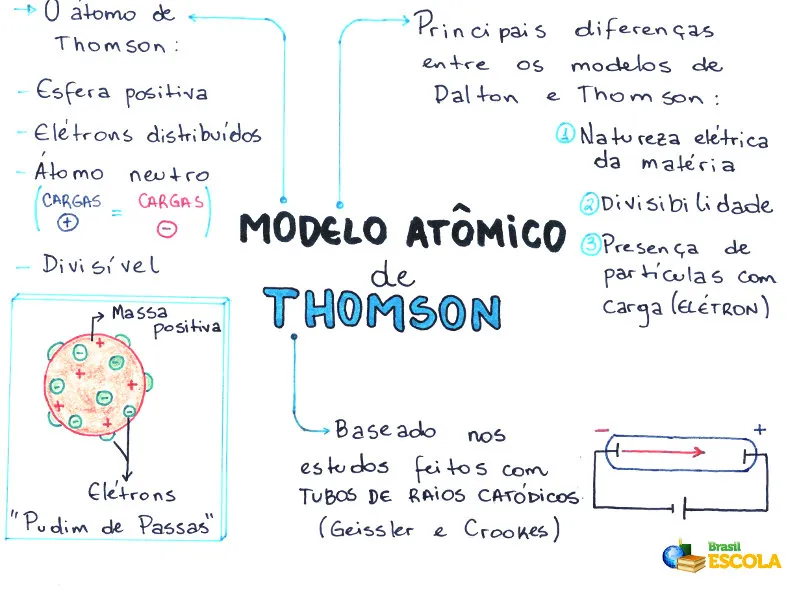 → O átomo de
Thomson:
- Esfera positiva
- Elétrons distribuídos
- Átomo neutro
(CARGAS = CARGAS)
+ -
- Divisível
Massa
positiva
Elétrons
"Pudim de Passas"
MODELO ATÔMICO
de
THOMSON
Principais diferenças
entre os modelos de
Dalton e Thomson:
1 Natureza elétrica
da matéria
2 Divisibilidade
3 Presença de
partículas com
carga (ELÉTRON)
Baseado nos
estudos feitos com
TUBOS DE RAIOS CATÓDICOS
(Geissler e Crookes)
- +
Brasil
ESCOLA